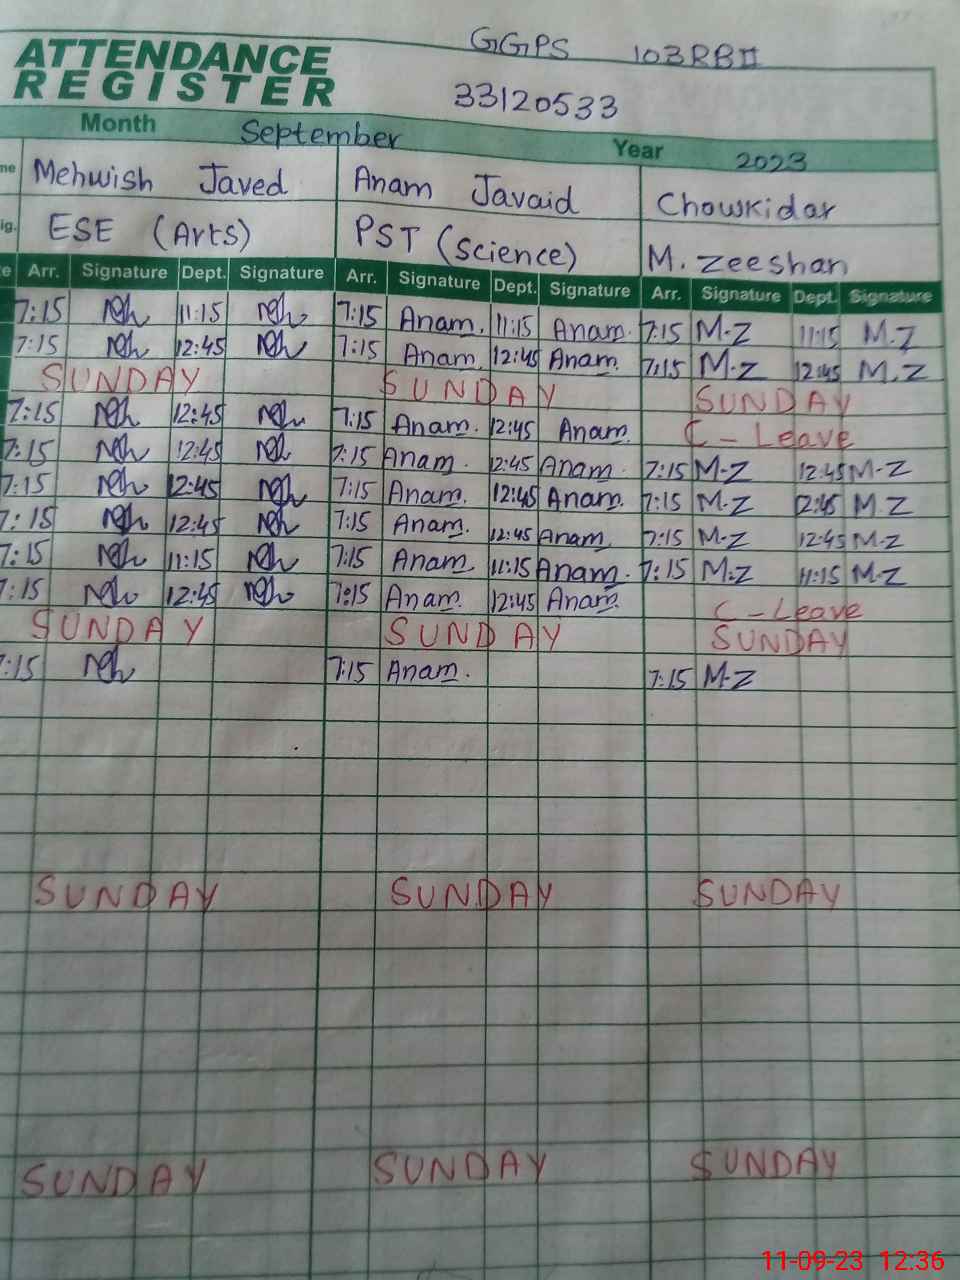 GGPS 103RBII
ATTENDANCE
REGISTER
33120533
Month September Year 2023
me Mehwish Javed Anam Javaid Chowkidar
ig. ESE (Arts) PST (Science) M. Zeeshan
e Arr. Signature Dept. Signature Arr. Signature Dept. Signature Arr. Signature Dept. Signature
7:15 11:15 7:15 Anam. 11:15 Anam. 7:15 M.Z 11:15 M.Z
7:15 12:45 7:15 Anam. 12:45 Anam. 7:15 M.Z 12:45 M.Z
SUNDAY SUNDAY SUNDAY
7:15 12:45 7:15 Anam. 12:45 Anam. C-Leave
7:15 12:45 7:15 Anam. 12:45 Anam. 7:15 M-Z 12:45 M-Z
7:15 12:45 7:15 Anam. 12:45 Anam. 7:15 M-Z 12:45 M-Z
7:15 12:45 7:15 Anam. 12:45 Anam. 7:15 M-Z 12:45 M-Z
7:15 11:15 7:15 Anam. 11:15 Anam. 7:15 M-Z 11:15 M-Z
7:15 12:45 7:15 Anam. 12:45 Anam. C-Leave
SUNDAY SUNDAY SUNDAY
7:15 7:15 Anam. 7:15 M-Z
SUNDAY SUNDAY SUNDAY
SUNDAY SUNDAY SUNDAY
11-09-23 12:36